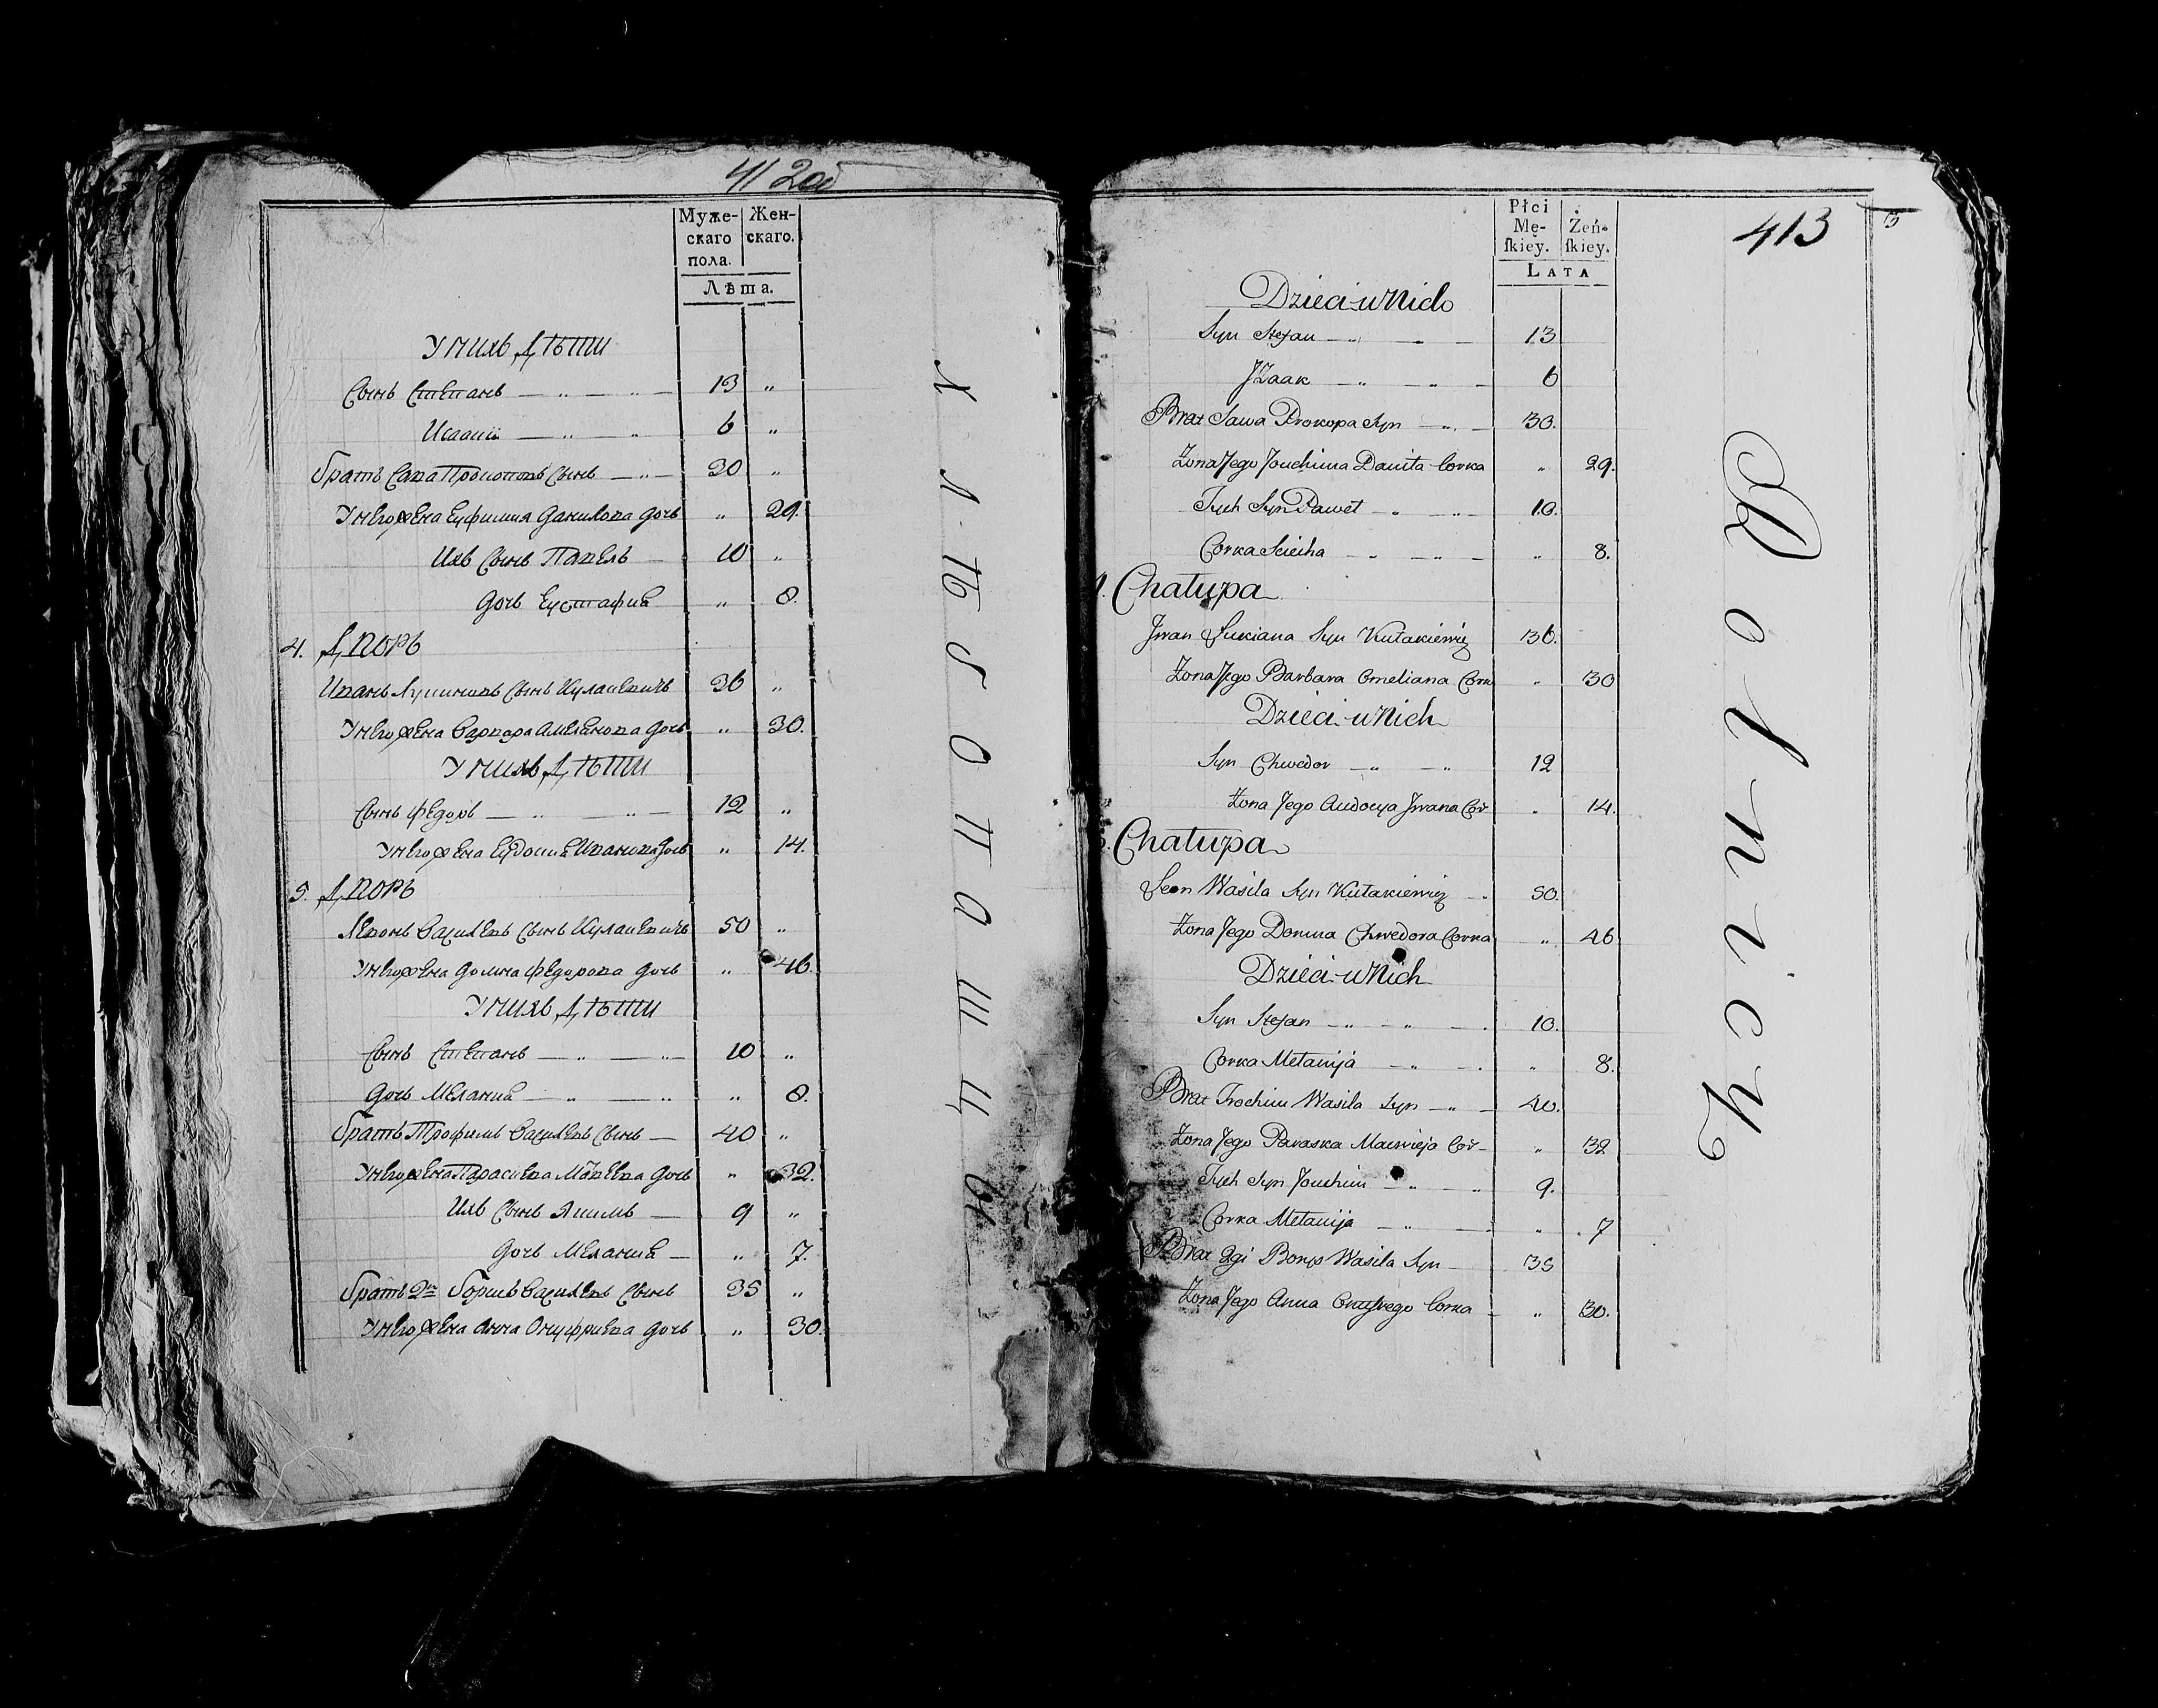 412об
Муже-
скаго
пола.
Жен-
скаго.
Лѣта.
У нихъ дѣти
Сынъ Степанъ — „ — „ — 13 „
Исаакій — „ — „ 6 „
Братъ Сава Прокоповъ Сынъ — „ — 30 „
У него жена Еуфимия Данилова дочь „ 29.
Ихъ Сынъ Павелъ — 10 „
Дочь Еустафия „ 8.
4. Дворъ
Иванъ Лукияновъ Сынъ Кулакевичъ 36 „
У него жена Варвара Амелянова дочь „ 30.
У нихъ дѣти
Сынъ Федоръ — „ — „ — 12 „
У него жена Еудокия Иванова дочь „ 14.
5. Дворъ
Левонъ Василевъ Сынъ Кулакевичъ 50 „
У него жена Домна Федорова дочь „ 46.
У нихъ дѣти
Сынъ Степанъ — „ — „ — 10 „
Дочь Мелания — „ — „ „ 8.
Братъ Трофимъ Василевъ Сынъ — 40 „
У него жена Парасцева Матвева дочь „ 32.
Ихъ Сынъ Якимъ — 9 „
Дочь Мелания — „ 7.
Братъ 2й Борисъ Василевъ Сынъ 35 „
У него жена Анна Онуфриева дочь „ 30.
Хлѣбопашцы
Płci
Mę-
ſkiey.
Żeń-
ſkiey.
LATA
413
Dzieci u Nich
Syn Stefan — „ — 13
JZaak — „ — „ — 6
Brat Sawa Prokopa Syn — „ — 30.
Żona Jego Jouchima Daniła Corka „ 29.
Tych Syn Paweł — „ — „ 10.
Corka Sciecha — „ — „ — „ 8.
Chałupa
Jwan Łukiana Syn Kułakiewicz 36.
Żona Jego Barbara Omeliana Cork „ 30
Dzieci u Nich
Syn Chwedor — „ — „ 12
Żona Jego Audocya Jwana Cor „ 14.
Chałupa
Leon Wasila Syn Kułakiewicz — „ 50.
Żona Jego Domna Chwedora Corka „ 46
Dzieci u Nich
Syn Stefan — „ — „ — 10.
Corka Mełanija — „ — „ 8.
Brat Trochim Wasila Syn — „ — 40.
Żona Jego Paraska Macwieja Cor — „ 32
Tych Syn Jouchim — „ — „ 9.
Corka Mełanija — „ — „ 7
Brat 2gi Borys Wasila Syn — 35
Żona Jego Anna Onufrego Corka — „ 30.
Rolnicy